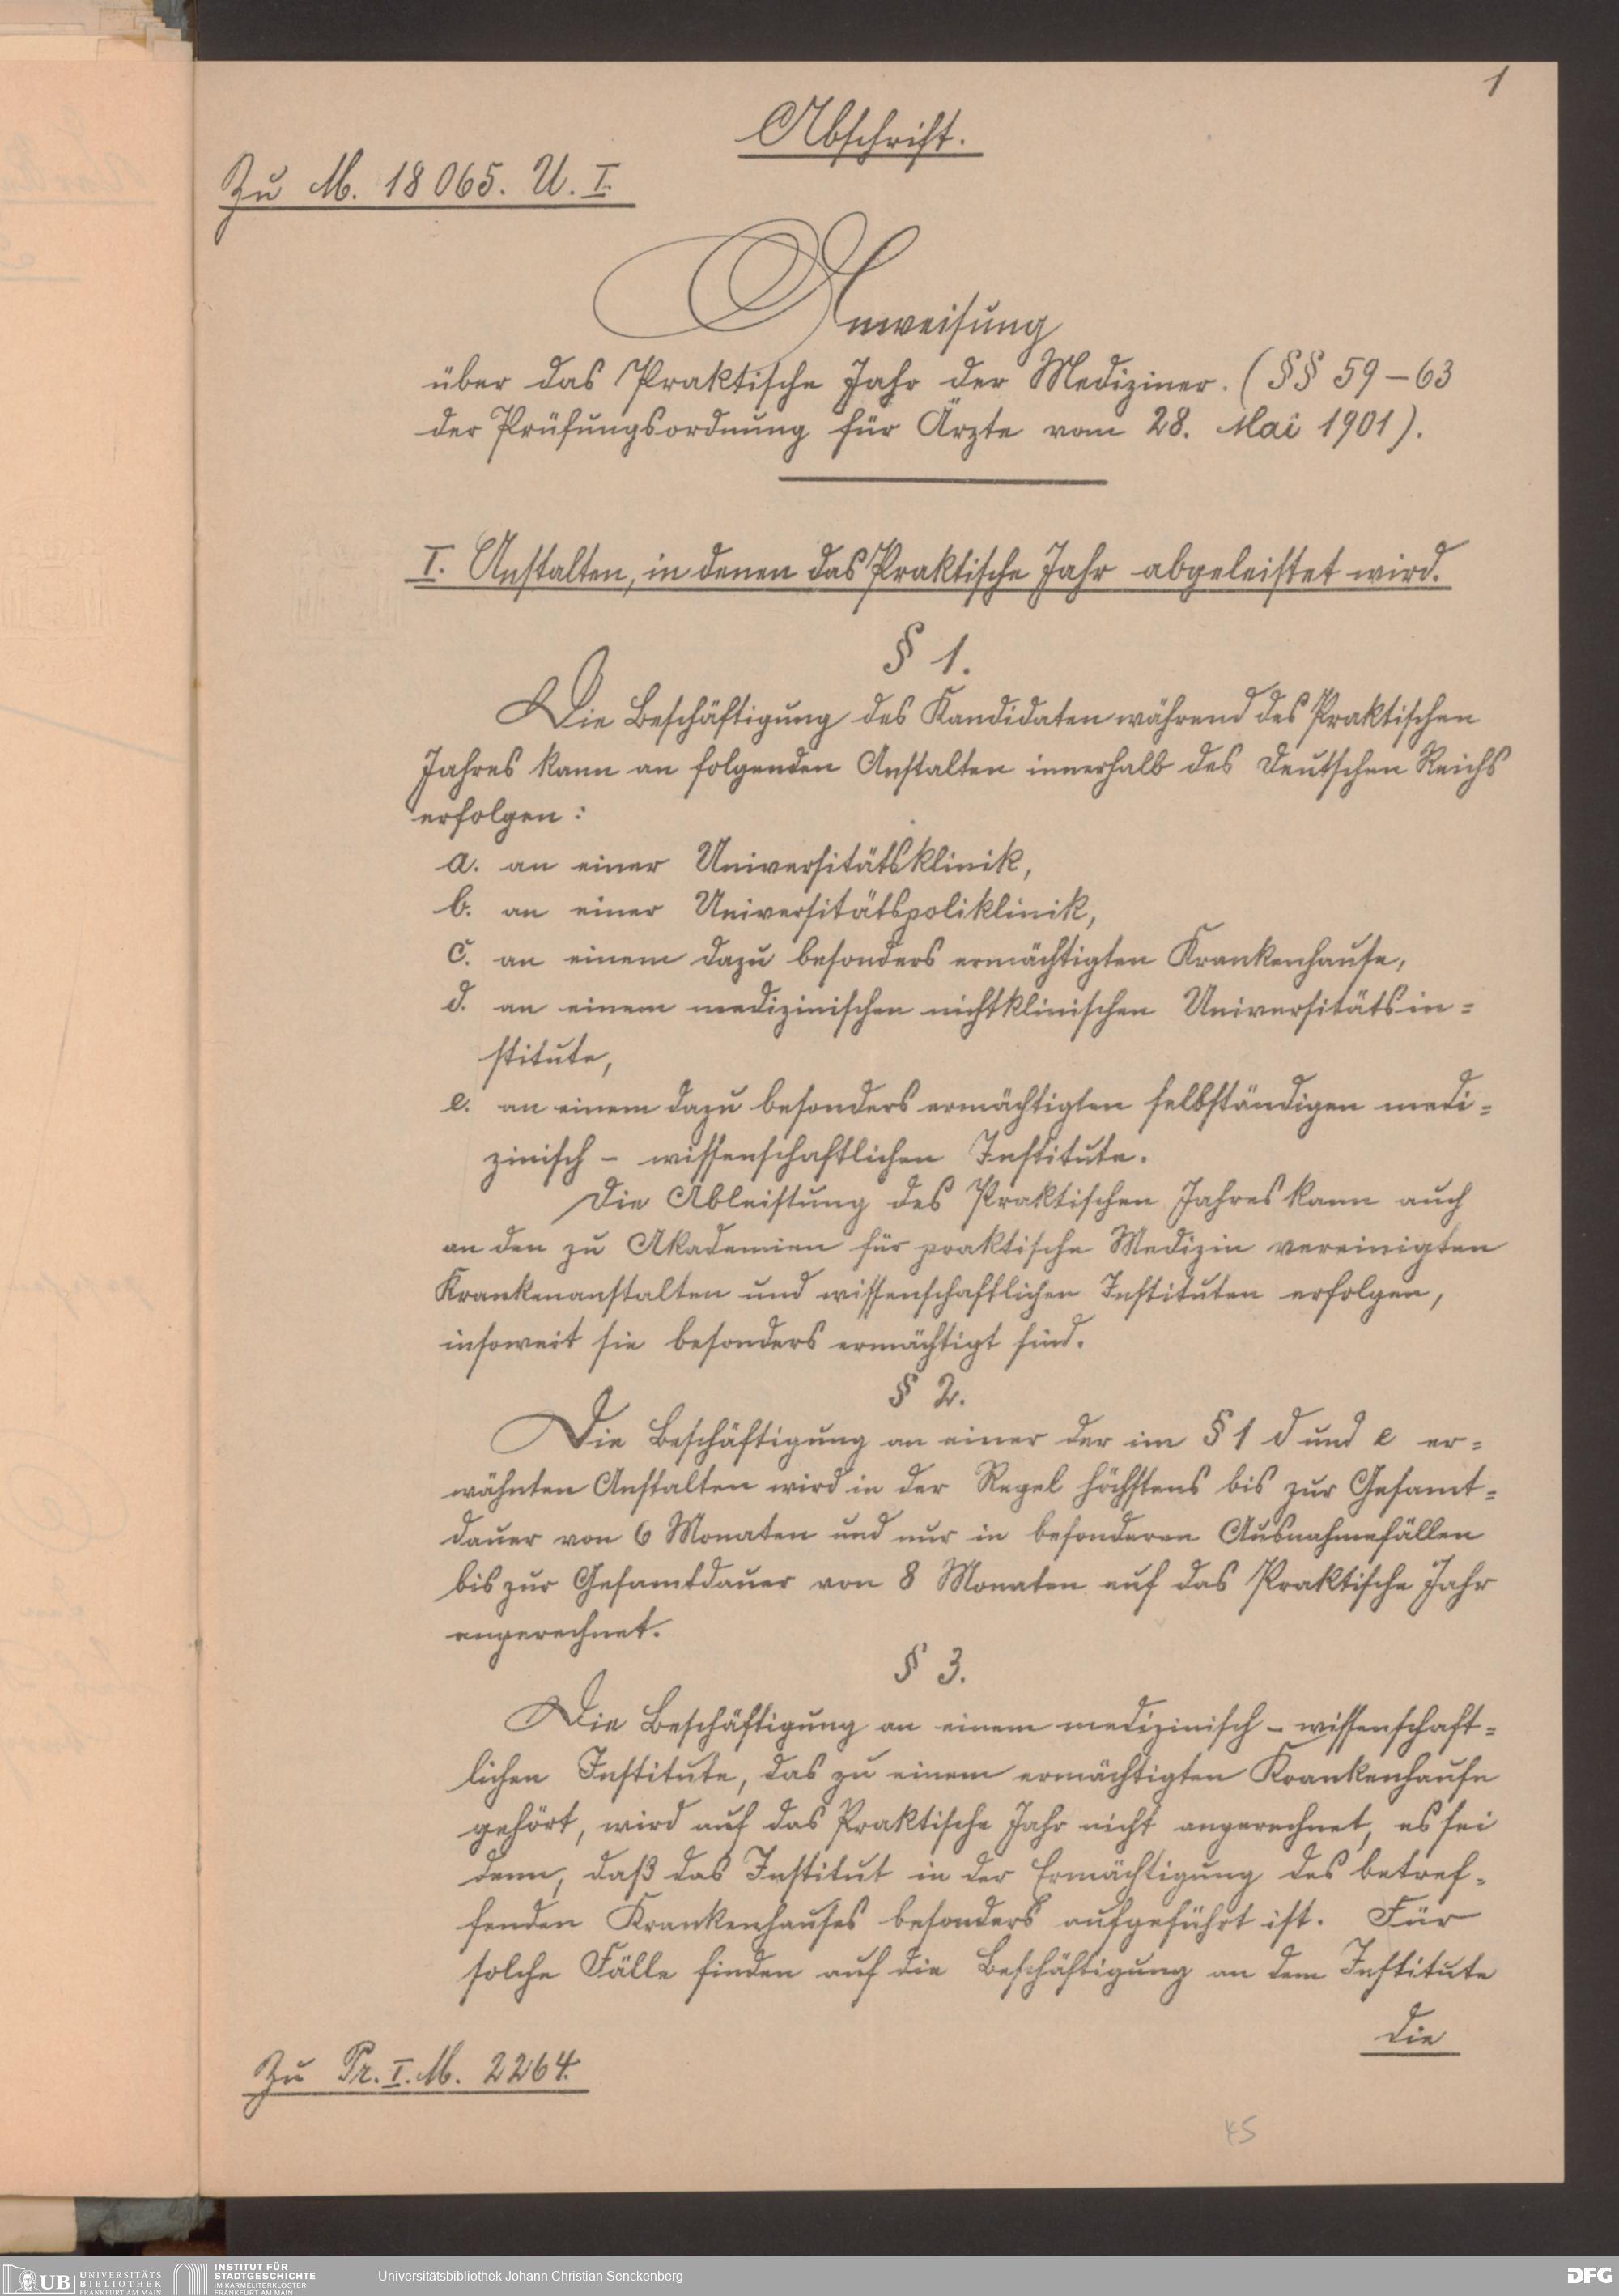 1
Abschrift.
Zu M. 18065. U. I.
Anweisung
über das Praktische Jahr der Mediziner. (§§ 59–63
der Prüfungsordnung für Ärzte vom 28. Mai 1901).
I. Anstalten, in denen das Praktische Jahr abgeleistet wird.
§ 1.
Die Beschäftigung des Kandidaten während des Praktischen
Jahres kann an folgenden Anstalten innerhalb des Deutschen Reichs
erfolgen:
a. an einer Universitätsklinik,
b. an einer Universitätspoliklinik,
c. an einem dazu besonders ermächtigten Krankenhause,
d. an einem medizinischen nichtklinischen Universitätsin=
stitute,
e. an einem dazu besonders ermächtigten selbständigen medi=
zinisch – wissenschaftlichen Institute.
Die Ableistung des Praktischen Jahres kann auch
an den zu Akademien für praktische Medizin vereinigten
Krankenanstalten und wissenschaftlichen Instituten erfolgen,
insoweit sie besonders ermächtigt sind.
§ 2.
Die Beschäftigung an einer der im § 1 d und e er=
wähnten Anstalten wird in der Regel höchstens bis zur Gesamt=
dauer von 6 Monaten und nur in besonderen Ausnahmefällen
bis zur Gesamtdauer von 8 Monaten auf das Praktische Jahr
angerechnet.
§ 3.
Die Beschäftigung an einem medizinisch – wissenschaft=
lichen Institute, das zu einem ermächtigten Krankenhause
gehört, wird auf das Praktische Jahr nicht angerechnet, es sei
denn, daß das Institut in der Ermächtigung des betref=
fenden Krankenhauses besonders aufgeführt ist. Für
solche Fälle finden auf die Beschäftigung an dem Institute
die
Zu Pr. I. M. 2264.
45
UB UNIVERSITÄTS
BIBLIOTHEK
FRANKFURT AM MAIN
INSTITUT FÜR
STADTGESCHICHTE
IM KARMELITERKLOSTER
FRANKFURT AM MAIN
Universitätsbibliothek Johann Christian Senckenberg
DFG